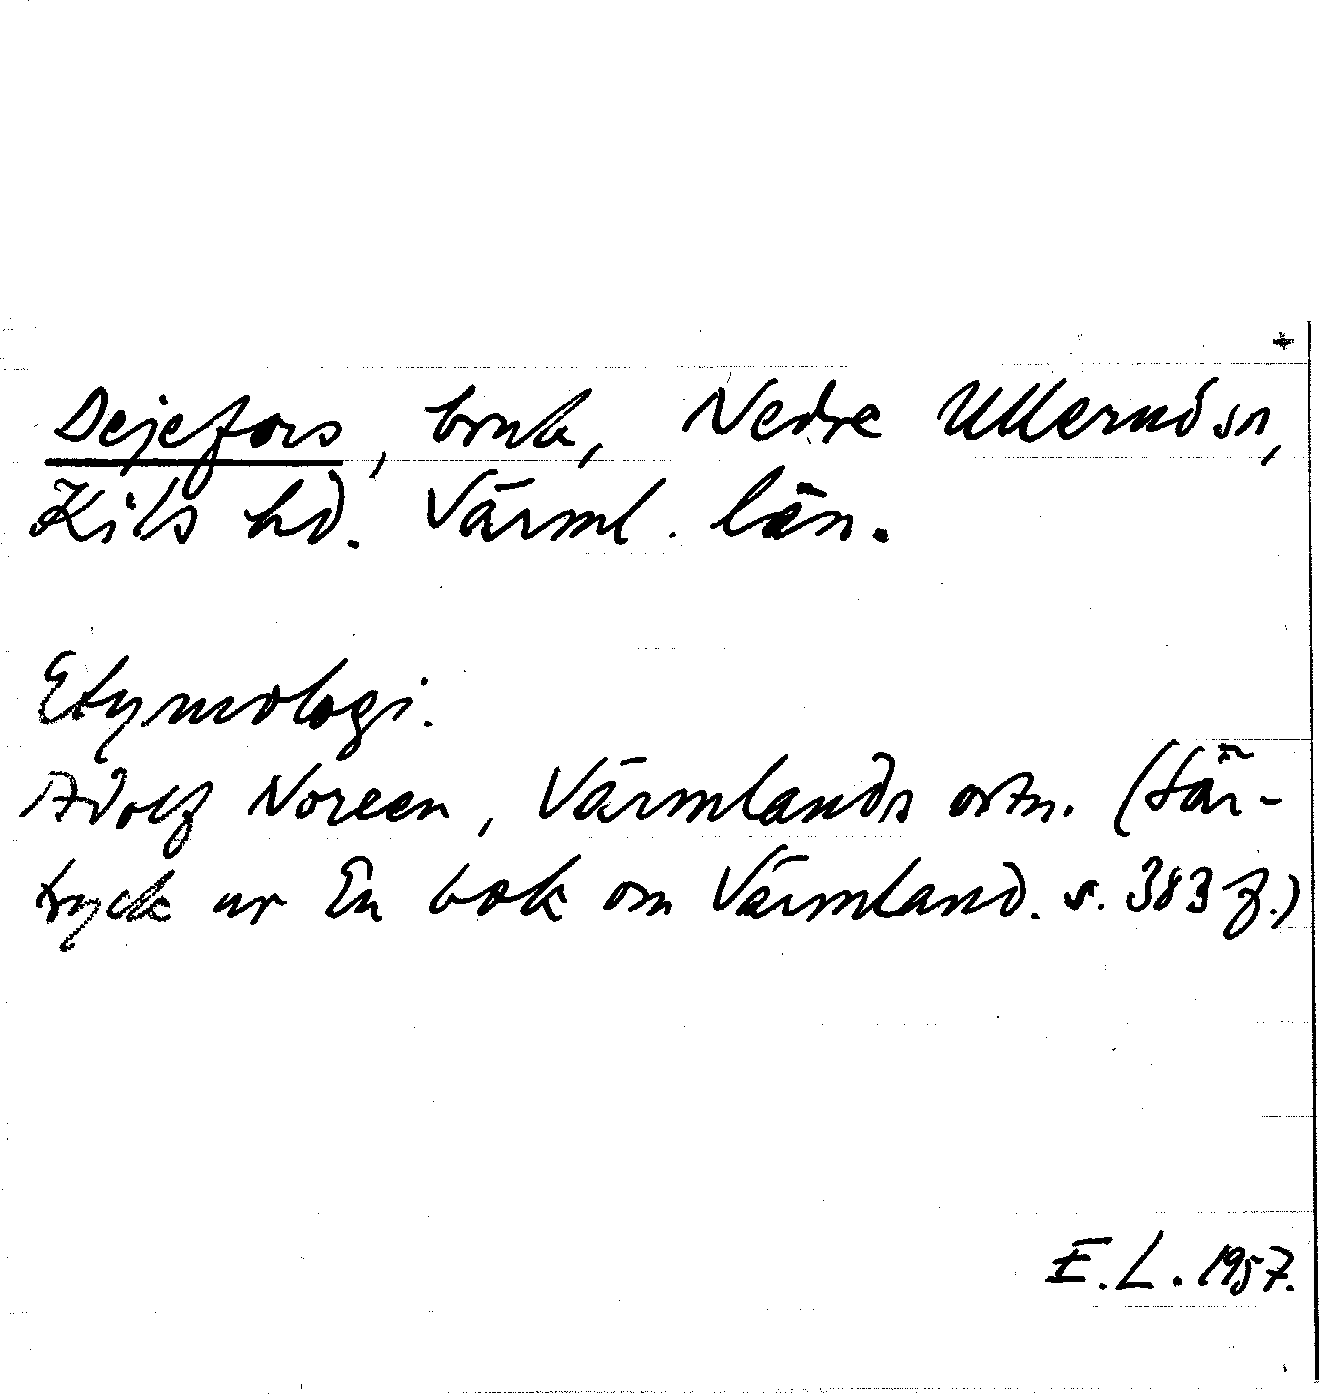 Dejefors, bruk, Nedre Ullerud sn,
Kils hd. Värml. län.
Etymologi.
Adolf Noreen, Värmlands ortn. (Sär-
tryck ur En bok om Värmland. s. 383 f.)
E. L. 1957.